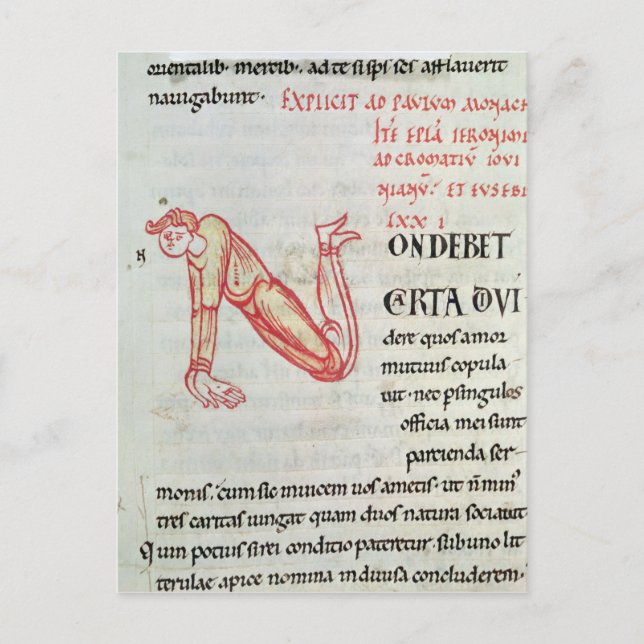 orientalib· mercib·. ad te si ipsi ses afflaverit
navigabunt· EXPLICIT AD PAVLVM MONACH
ITE EPLA IERONIMI
AD CROMATIŪ IOVI
NIANŪ· ET EUSEBI
LXX I
N
ONDEBET
CARTA DIVI
dere quos amor
mutuus copula
vit· nec p singulos
officia mei sunt
parcienda ser
monis· cum sic invicem vos ametis· ut n̄ min'
tres caritas iungat quam duos natura sociavit
Quin potius si rei conditio pateretur· sub uno lit
terulae apice nomina indivisa concluderem·